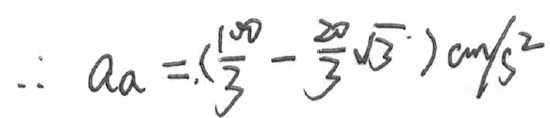 ∴ a_a = (\frac{100}{3} - \frac{20}{3}\sqrt{3}) cm/s^2